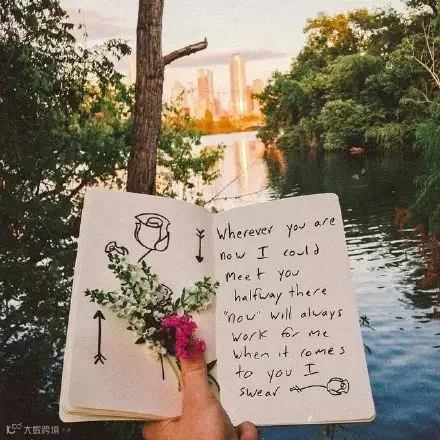 Wherever you are
now I could
meet you
halfway there
"now" will always
work for me
when it comes
to you I
swear
大数跨境